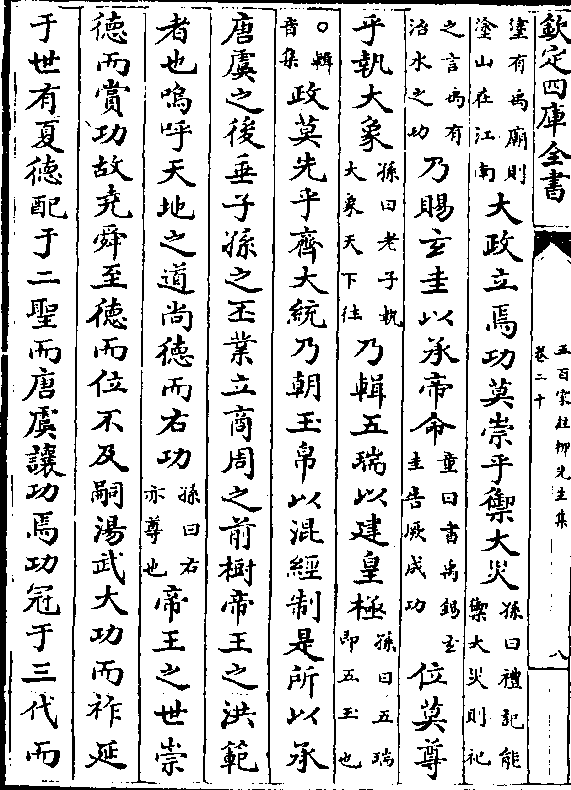 欽定四庫全書
五百家註柳先生集
卷二十
八
塗有禹廟則
塗山在江南
大政立焉功莫崇乎禦大災
孫曰禮記能
禦大災則祀
之言禹有
治水之功
乃賜玄圭以承帝命
童曰書禹錫玄
圭告厥成功
位莫尊
乎執大象
孫曰老子執
大象天下往
乃輯五瑞以建皇極
孫曰五瑞
即五玉也
○輯
音集
政莫先乎齊大統乃朝玉帛以混經制是所以承
唐虞之後垂子孫之丕業立商周之前樹帝王之洪範
者也嗚呼天地之道尚德而右功
孫曰右
亦尊也
帝王之世崇
德而賞功故堯舜至德而位不及嗣湯武大功而祚延
于世有夏德配于二聖而唐虞讓功焉功冠于三代而